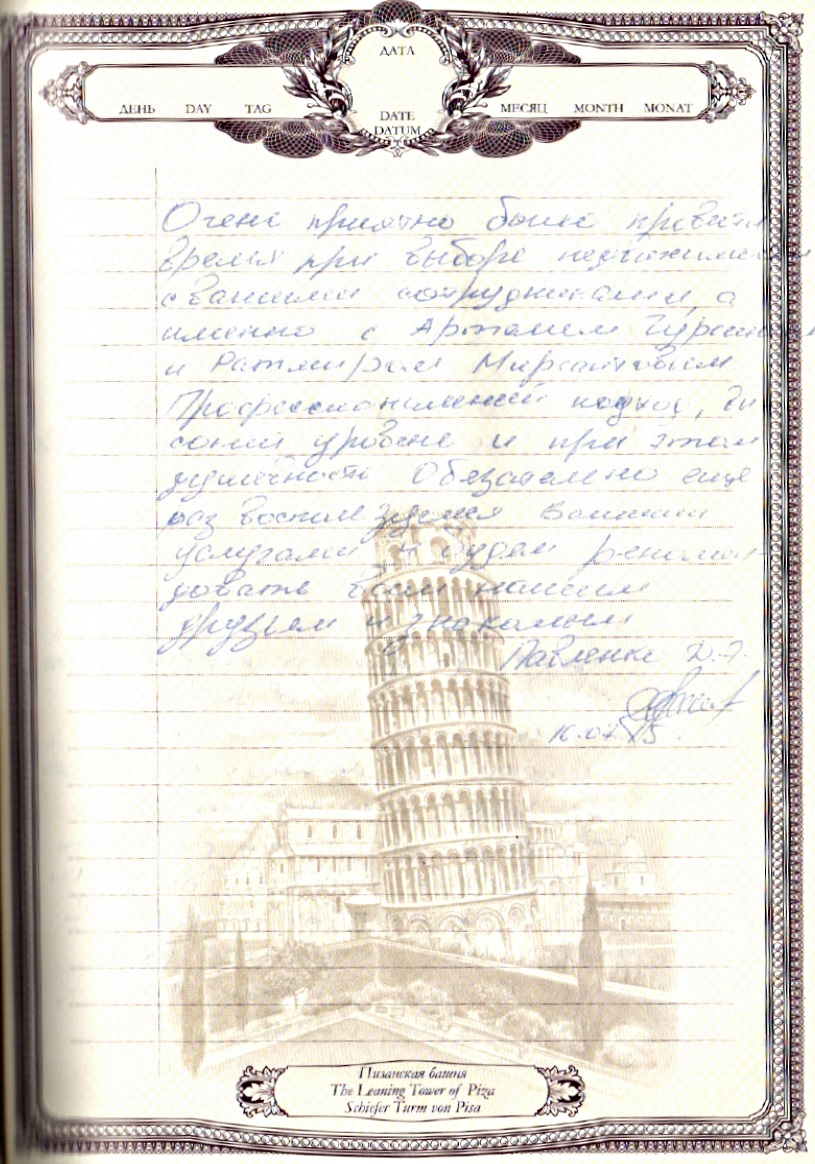 ДАТА
ДЕНЬ DAY TAG
DATE
DATUM
МЕСЯЦ MONTH MONAT
Очень приятно было провести
время при выборе недвижимости
с вашими сотрудниками, а
именно с Артемием
и Ратмиром
Профессиональный подход, вы
сокий уровень и при этом
душевность Обязательно еще
раз воспользуемся Вашими
услугами и будем рекомен-
довать всем нашим
друзьям и знакомым
Павленко Д.Э.
16.07.15.
Пизанская башня
The Leaning Tower of Piza
Schiefer Turm von Pisa